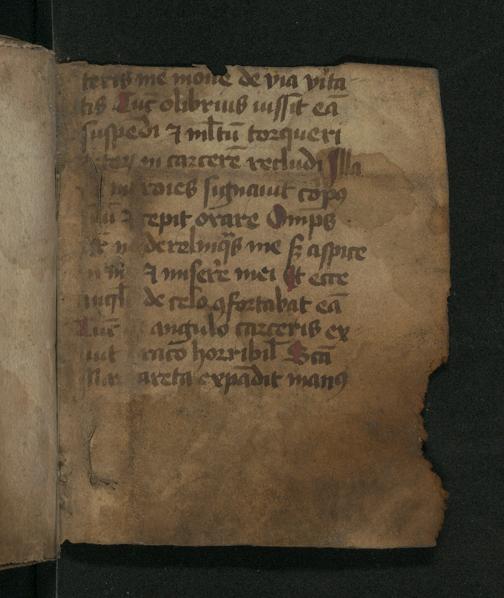 teris me mone de via vita
tis Tūc olibrius iussit eā
suspēdi ⁊ ml̄tū torqueri
in carcerē recludi Illa
signauit corpꝯ
⁊ cepit orare Omīps
derelinq̄s me sꝫ aspice
⁊ miserēre mei Et ecce
āngl̄s de celo ꝯfortabat eā
Tūc angulo carceris ex
iuit draco horribil̄ Scā
Margareta expādit manꝯ